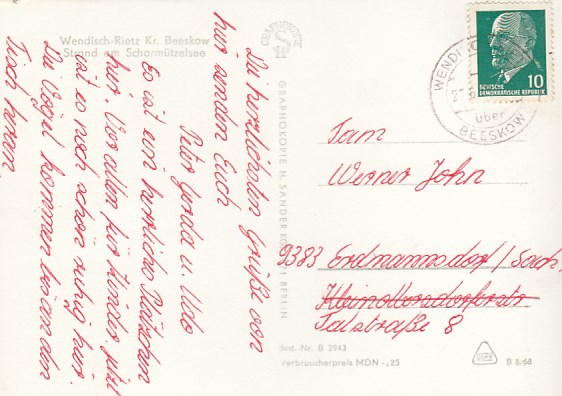 Wendisch-Rietz Kr. Beeskow
Strand am Scharmützelsee
Die herzlichsten Grüße von
hier senden Euch
Peter Gerda u. Udo
Es ist ein herrliches Plätzchen
hier. Vor allem für Kinder. Jetzt
ist es noch schön ruhig hier.
Die Vögel kommen bis an den
Tisch heran.
GRAPHOKOPIE H. SANDER KG, BERLIN
DEUTSCHE
DEMOKRATISCHE REPUBLIK
10
über
BEESKOW
Fam
Werner John
9383 Erdmannsdorf/Sach.
Kleinolbersdorferstr
Talstraße 8
Best.-Nr. B 2943
Verbraucherpreis MDN -,25
B 8/68